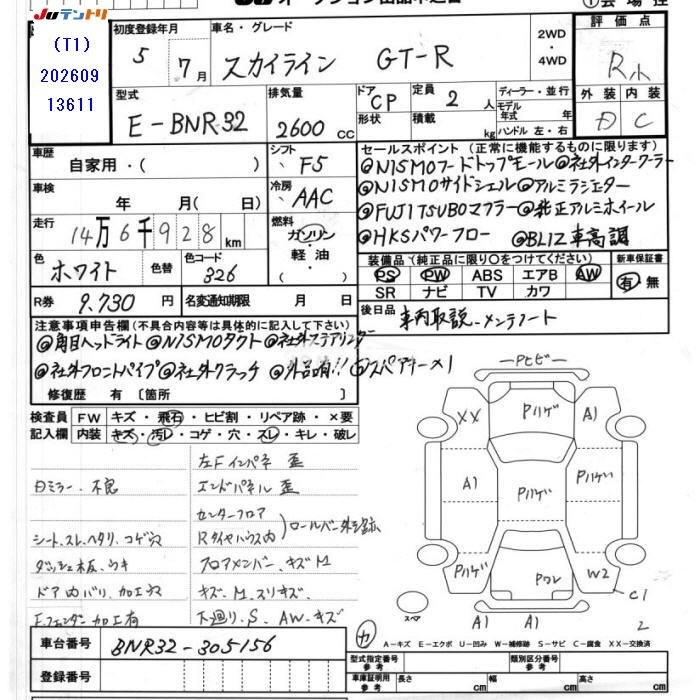 Juテントリ
(T1)
202609
13611
初度登録年月
5 7月
車名・グレード
スカイライン GT-R
2WD
・
4WD
評価点
R
外装 内装
D C
型式
E-BNR32
排気量
2600 cc
ドア CP
形状
定員 2 人
積載 kg
ディーラー・並行
モデル年式 年式
ハンドル 左・右
車歴
自家用・( )
シフト F5
車検 年 月( 日)
冷房 AAC
走行 14万6千928 km
燃料 ガソリン・軽油
( )
色 ホワイト 色替
色コード 326
R券 9.730 円
名変通知期限 月 日
セールスポイント (正常に機能するものに限ります)
◎NISMOフードトップモール ◎社外インタークーラー
◎NISMOサイドシェル ◎アルミラジエター
◎FUJITSUBOマフラー ◎純正アルミホイール
◎HKSパワーフロー ◎BLIZ車高調
装備品 (純正品に限り〇をつけてください)
PS PW ABS エアB AW
SR ナビ TV カワ
新車保証書
有・無
後日品 車内取説-メンテノート
注意事項申告欄 (不具合内容等は具体的に記入して下さい)
◎角目ヘッドライト ◎NISMOタクト ◎社外ステアリング
◎社外フロントパイプ ◎社外クラッチ ◎外品有!! ◎スペアキー×1
修復歴 有 [箇所 ]
検査員 FW キズ・飛石・ヒビ割・リペア跡・×要
記入欄 内装 キズ・汚レ・コゲ・穴・スレ・キレ・破レ
左Fインパネ 歪
Dミラー.不良 エンドパネル 歪
センターフロア
シート、スレ、ヘタリ、コゲ穴 Rタイヤハウス内 ロールバー外シ跡
ダッシュ板、ウキ フロアメンバー、キズM
ドア内バリ、加工穴 キズ、M、スリキズ
F.フェンダー加工有 下廻り、S、AW-キズ
Pヒビ
XX Pハゲ A1
A1 Pハゲ Pハゲ
Pハゲ Pワレ W2
C1
A1 A1
スペア
2
車台番号 BNR32-305156
登録番号
A-キズ E-エクボ U-凹み W-補修跡 S-サビ C-腐食 XX-交換済
型式指定番号 参考
類別区分番号 参考
車庫証明用 参考 長さ cm 幅 cm 高さ cm